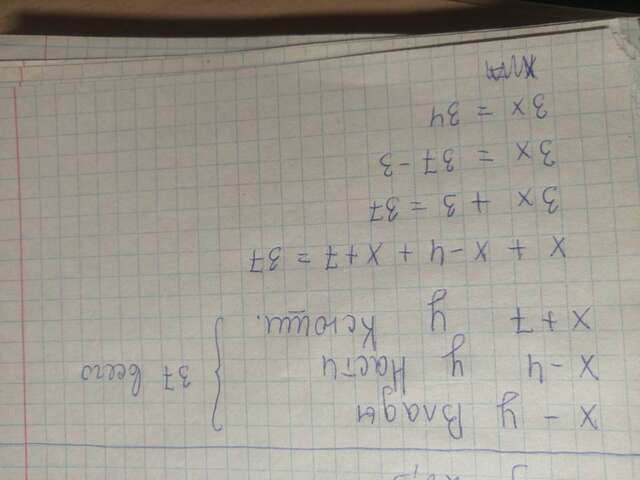 x - у Влады
x-4 у Насти
x+7 у Ксюши.
} 37 всего
x + x-4 + x+7 = 37
3x + 3 = 37
3x = 37-3
3x = 34